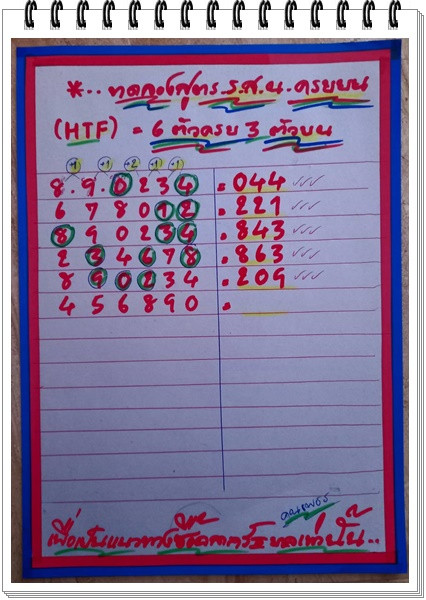 *.. ทดลองสูตร ร.ศ.น. ครบบน
(HTF) = 6 ตัวครบ 3 ตัวบน
+1 +1 +2 +1 +1
8.9.0234 = 044 ✓✓✓
678012 = 221 ✓✓✓
890234 = 843 ✓✓✓
234678 = 863 ✓✓✓
890234 = 209 ✓✓✓
456890 =
เพื่อเป็นแนวทาง เท่านั้น..